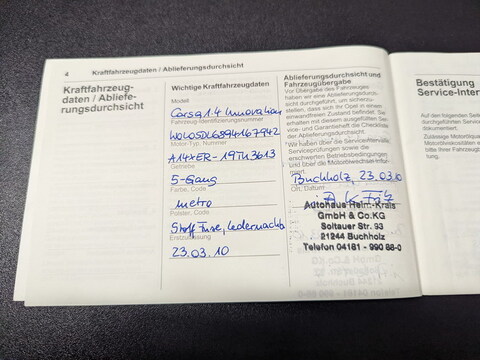 4 Kraftfahrzeugdaten / Ablieferungsdurchsicht
Kraftfahrzeug-
daten / Abliefe-
rungsdurchsicht
Wichtige Kraftfahrzeugdaten
Modell
Corsa 1.4 Innovation
Fahrzeug-Identifizierungsnummer
W0L0SDL6894167942
Motor-Typ, Nummer
A14XER-19TH3613
Getriebe
5-Gang
Farbe, Code
metro
Polster, Code
Stoff
Erstzulassung
23.03.10
Ablieferungsdurchsicht und
Fahrzeugübergabe
Vor Übergabe des Fahrzeuges
haben wir eine Ablieferungsdurch-
sicht durchgeführt, um sicherzu-
stellen, dass sich Ihr Opel in einem
einwandfreien Zustand befindet. Sie
erhalten mit diesem ausgefüllten Ser-
vice- und Garantieheft die Checkliste
der Ablieferungsdurchsicht.
Wir haben über die Serviceintervalle,
Serviceprüfungen sowie die
erschwerten Betriebsbedingungen
und über die Motorölwechsel
hingewiesen.
Buchholz, 23.03.10
Ort, Datum
Autohaus Helm-Krais
GmbH & Co.KG
Soltauer Str. 93
21244 Buchholz
Telefon 04181 - 990 88-0
Bestätigung
Service-Inter
Auf den folgenden Seiten
durchgeführten Service
dokumentiert.
Zusätzliche
Motorölviskositäten
bitte Ihrer Fahrzeug